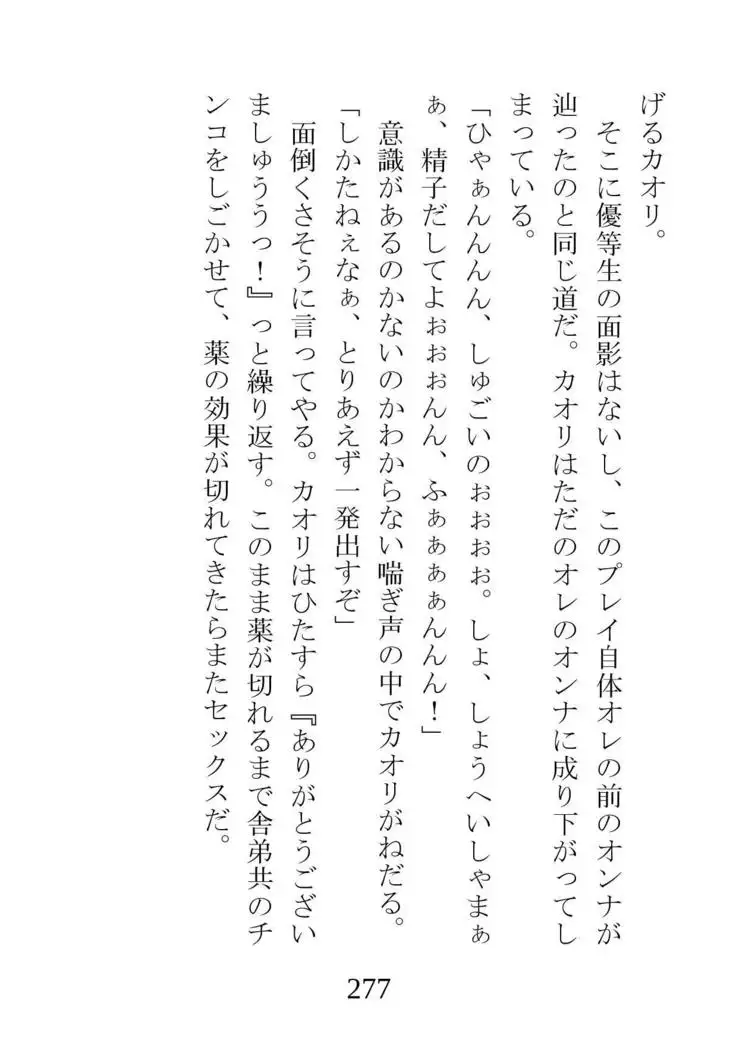 げるカオリ。
そこに優等生の面影はないし、このプレイ自体オレの前のオンナが
辿ったのと同じ道だ。カオリはただのオレのオンナに成り下がってし
まっている。
「ひゃぁんんんん、しゅごいのぉぉぉぉ。しょ、しょうへいしゃまぁ
ぁ、精子だしてよぉぉぉんん、ふぁぁぁぁんんん！」
意識があるのかないのかわからない喘ぎ声の中でカオリがねだる。
「しかたねぇなぁ、とりあえず一発出すぞ」
面倒くさそうに言ってやる。カオリはひたすら『ありがとうござい
ましゅううっ！』っと繰り返す。このまま薬が切れるまで舎弟共のチ
ンコをしごかせて、薬の効果が切れてきたらまたセックスだ。
277